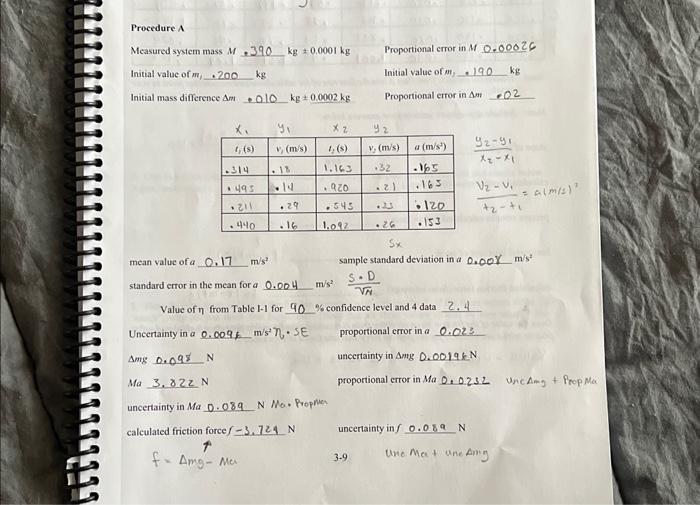 Procedure A
Measured system mass M .390 kg ± 0.0001 kg Proportional error in M 0.00026
Initial value of m₁ .200 kg Initial value of m₂ .190 kg
Initial mass difference Δm .010 kg ± 0.0002 kg Proportional error in Δm .02
x₁ y₁ x₂ y₂
t₁ (s) v₁ (m/s) t₂ (s) v₂ (m/s) a (m/s²)
.314 .18 1.163 .32 .165
.495 .14 .920 .21 .165
.211 .29 .545 .23 .120
.440 .16 1.092 .26 .153
y₂-y₁
x₂-x₁
v₂-v₁ = a(m/s)²
t₂-t₁
Sx
mean value of a 0.17 m/s² sample standard deviation in a 0.008 m/s²
standard error in the mean for a 0.004 m/s² S.D
√N
Value of η from Table I-1 for 90 % confidence level and 4 data 2.4
Uncertainty in a 0.0096 m/s² η • SE proportional error in a 0.023
Δmg 0.098 N uncertainty in Δmg 0.00196 N
Ma 3.822 N proportional error in Ma 0.0232 Unc Δmg + Prop Ma
uncertainty in Ma 0.089 N Ma • Prop Ma
calculated friction force f -3.724 N uncertainty in f 0.089 N
f = Δmg - Ma 3-9 Unc Ma + unc Δmg